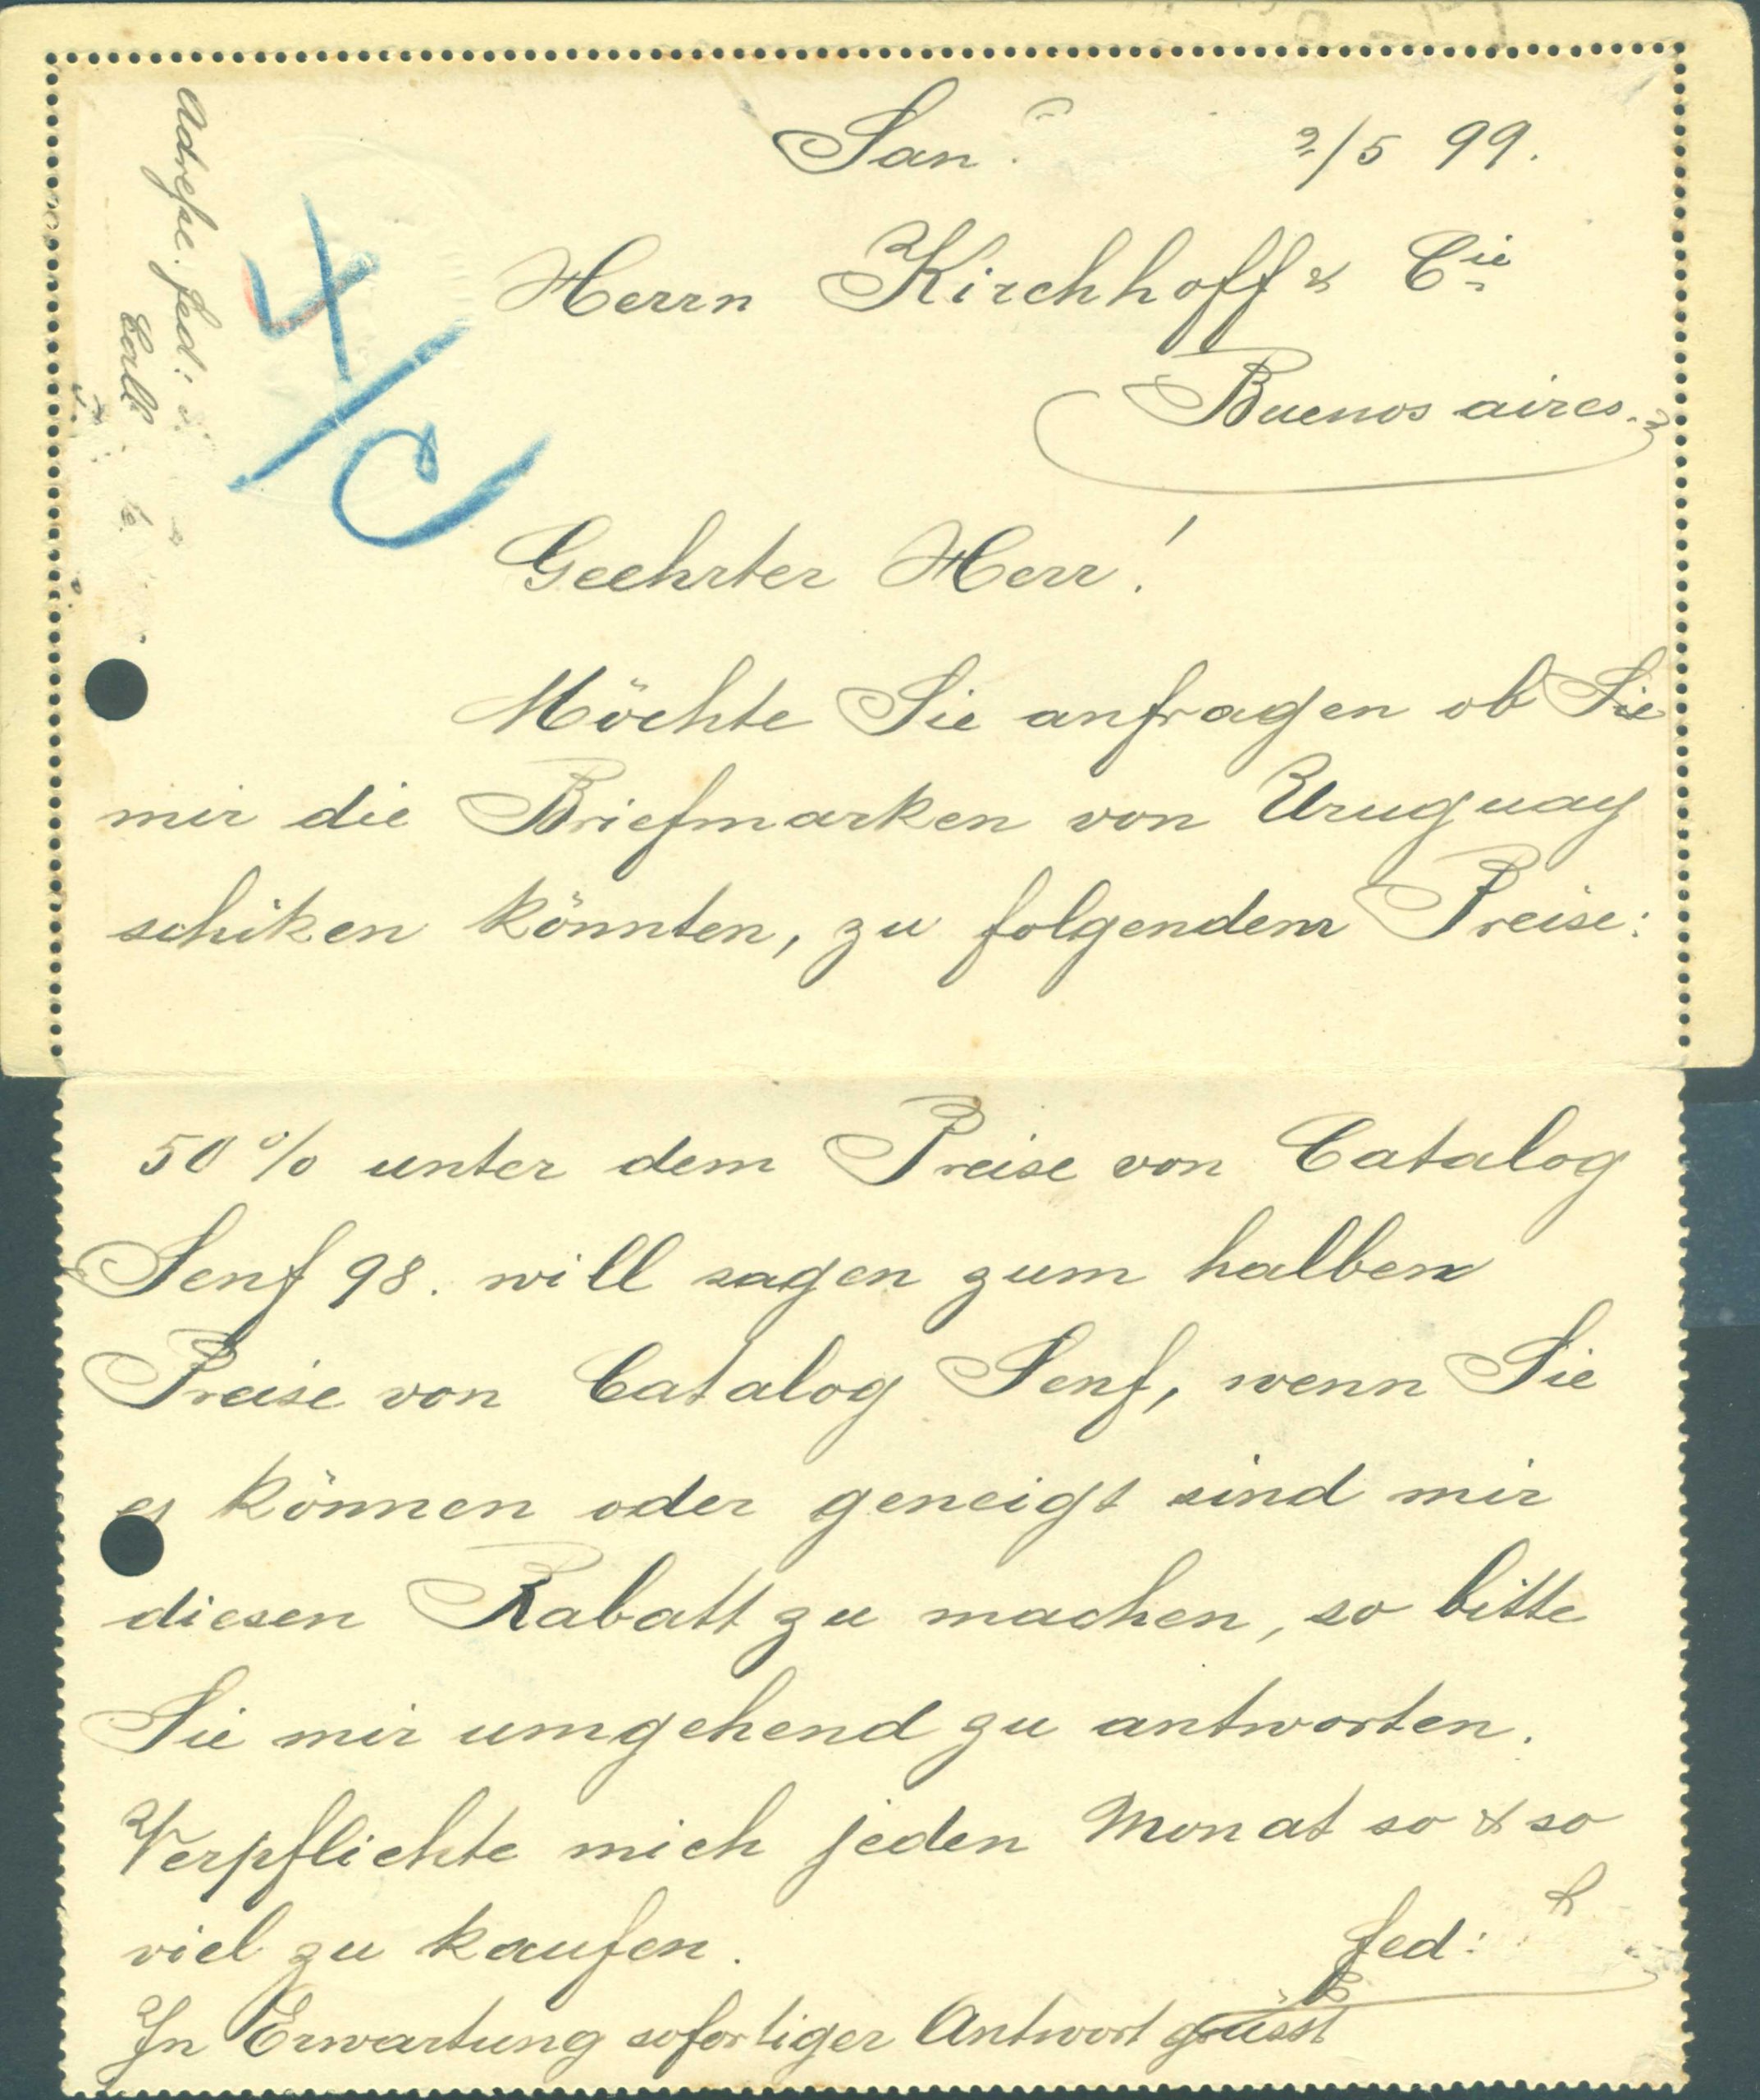 San
2/5 99.
Herrn Kirchhoff & Cie
Buenos aires.
Geehrter Herr!
Möchte Sie anfragen ob Sie
mir die Briefmarken von Uruguay
schiken könnten, zu folgendem Preise:
50% unter dem Preise von Catalog
Senf 98. will sagen zum halben
Preise von Catalog Senf, wenn Sie
es können oder geneigt sind mir
diesen Rabatt zu machen, so bitte
Sie mir umgehend zu antworten.
Verpflichte mich jeden Monat so & so
viel zu kaufen.
In Erwartung sofortiger Antwort grüsst
fed:
Adreße. fed:
4/C